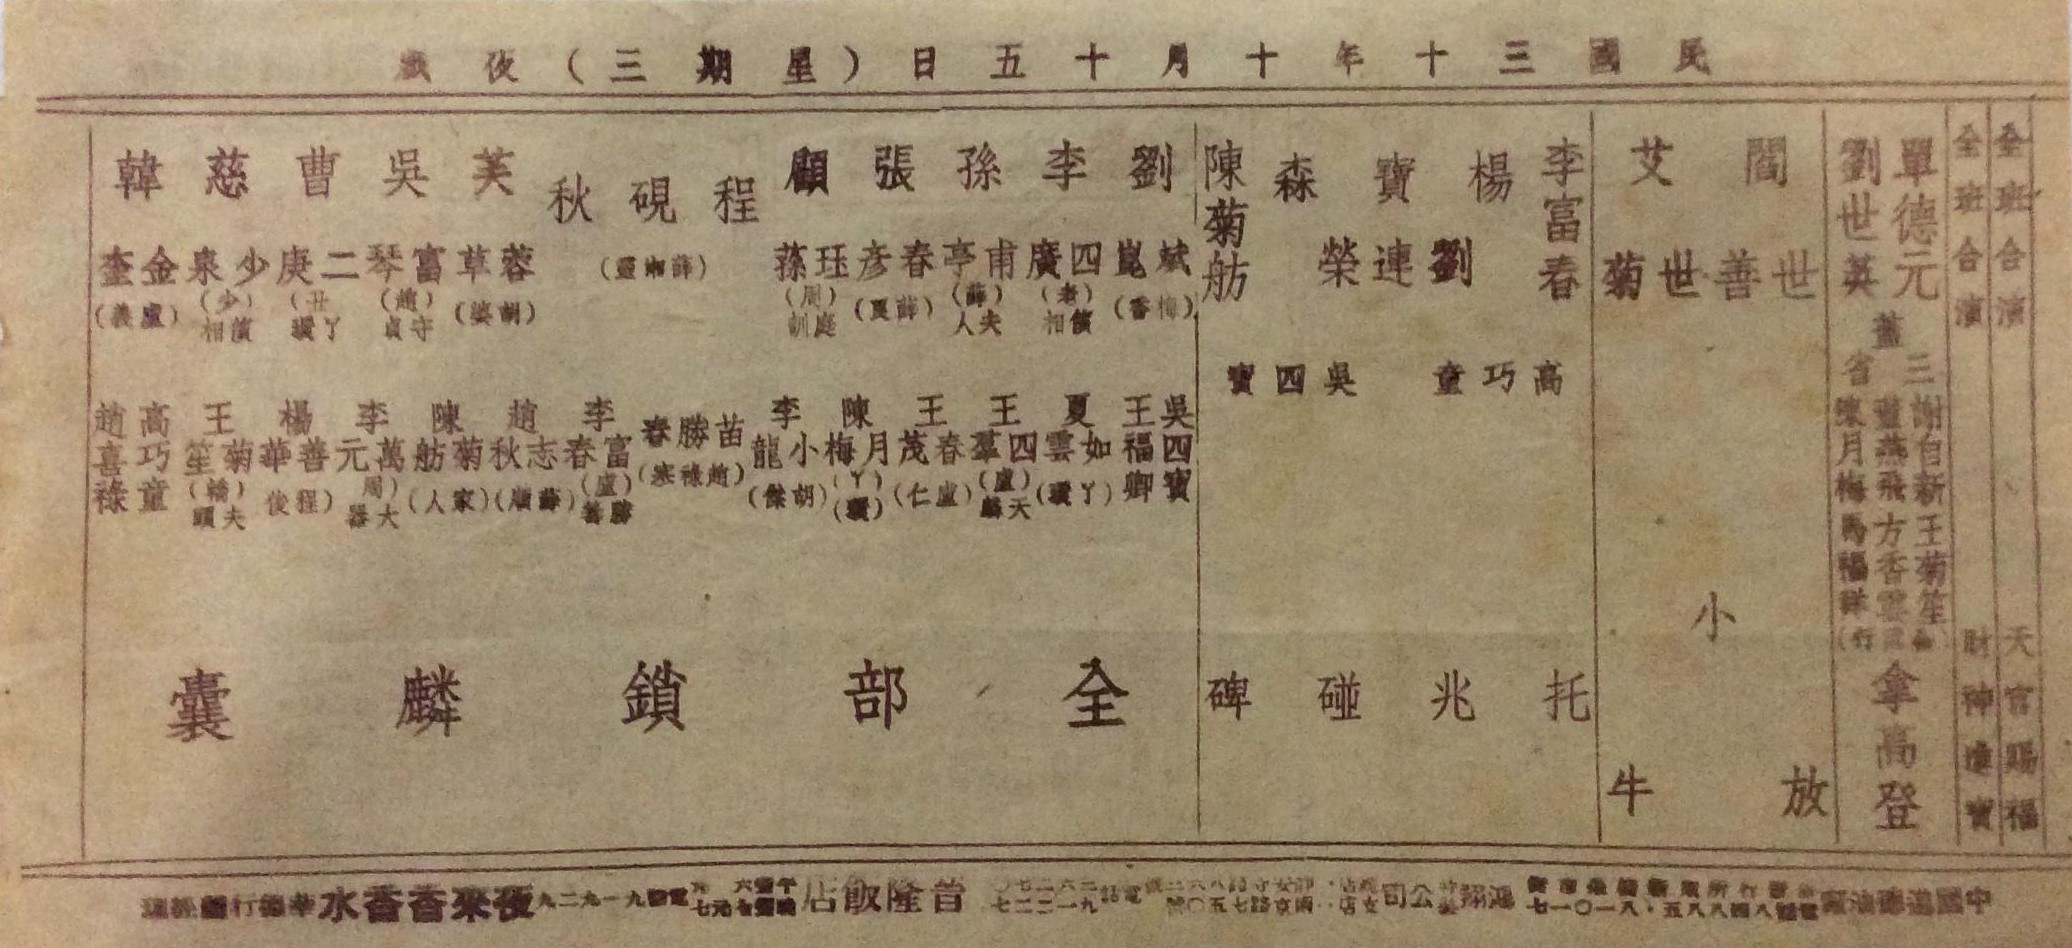 民國三十年十月十五日（星期三）夜戲
全班合演
天官賜福
全班合演
財神進寶
單德元
劉世英
董三省
謝自新 王菊笙
董燕飛 方香雲
陳月梅 馬福祥
拿高登
閻世善
艾世菊
小放牛
李富春
楊寶森
劉連榮
陳菊舫
高巧童
吳四寶
托兆碰碑
劉斌崑（梅香）
李四廣（老儐相）
孫甫亭（薛夫人）
張春彥（薛夏）
顧珏蓀（周庭訓）
程硯秋（薛湘靈）
芙蓉草（胡婆）
吳富琴（趙守貞）
曹二庚（丑丫環）
慈少泉（少儐相）
韓金奎（盧義）
吳四寶
王福卿
夏如雲（丫環）
王四羣（盧天麟）
王春茂（盧仁）
陳月梅（丫環）
李小龍（胡傑）
苗勝春（趙祿寒）
李富春（盧勝籌）
趙志秋（薛順）
陳菊舫（家人）
李萬元（周大器）
楊善華（程俊）
王菊笙（轎夫頭）
高巧童
趙喜祿
全部鎖麟囊
鴻翔公司
普隆飯店
夜來香香水